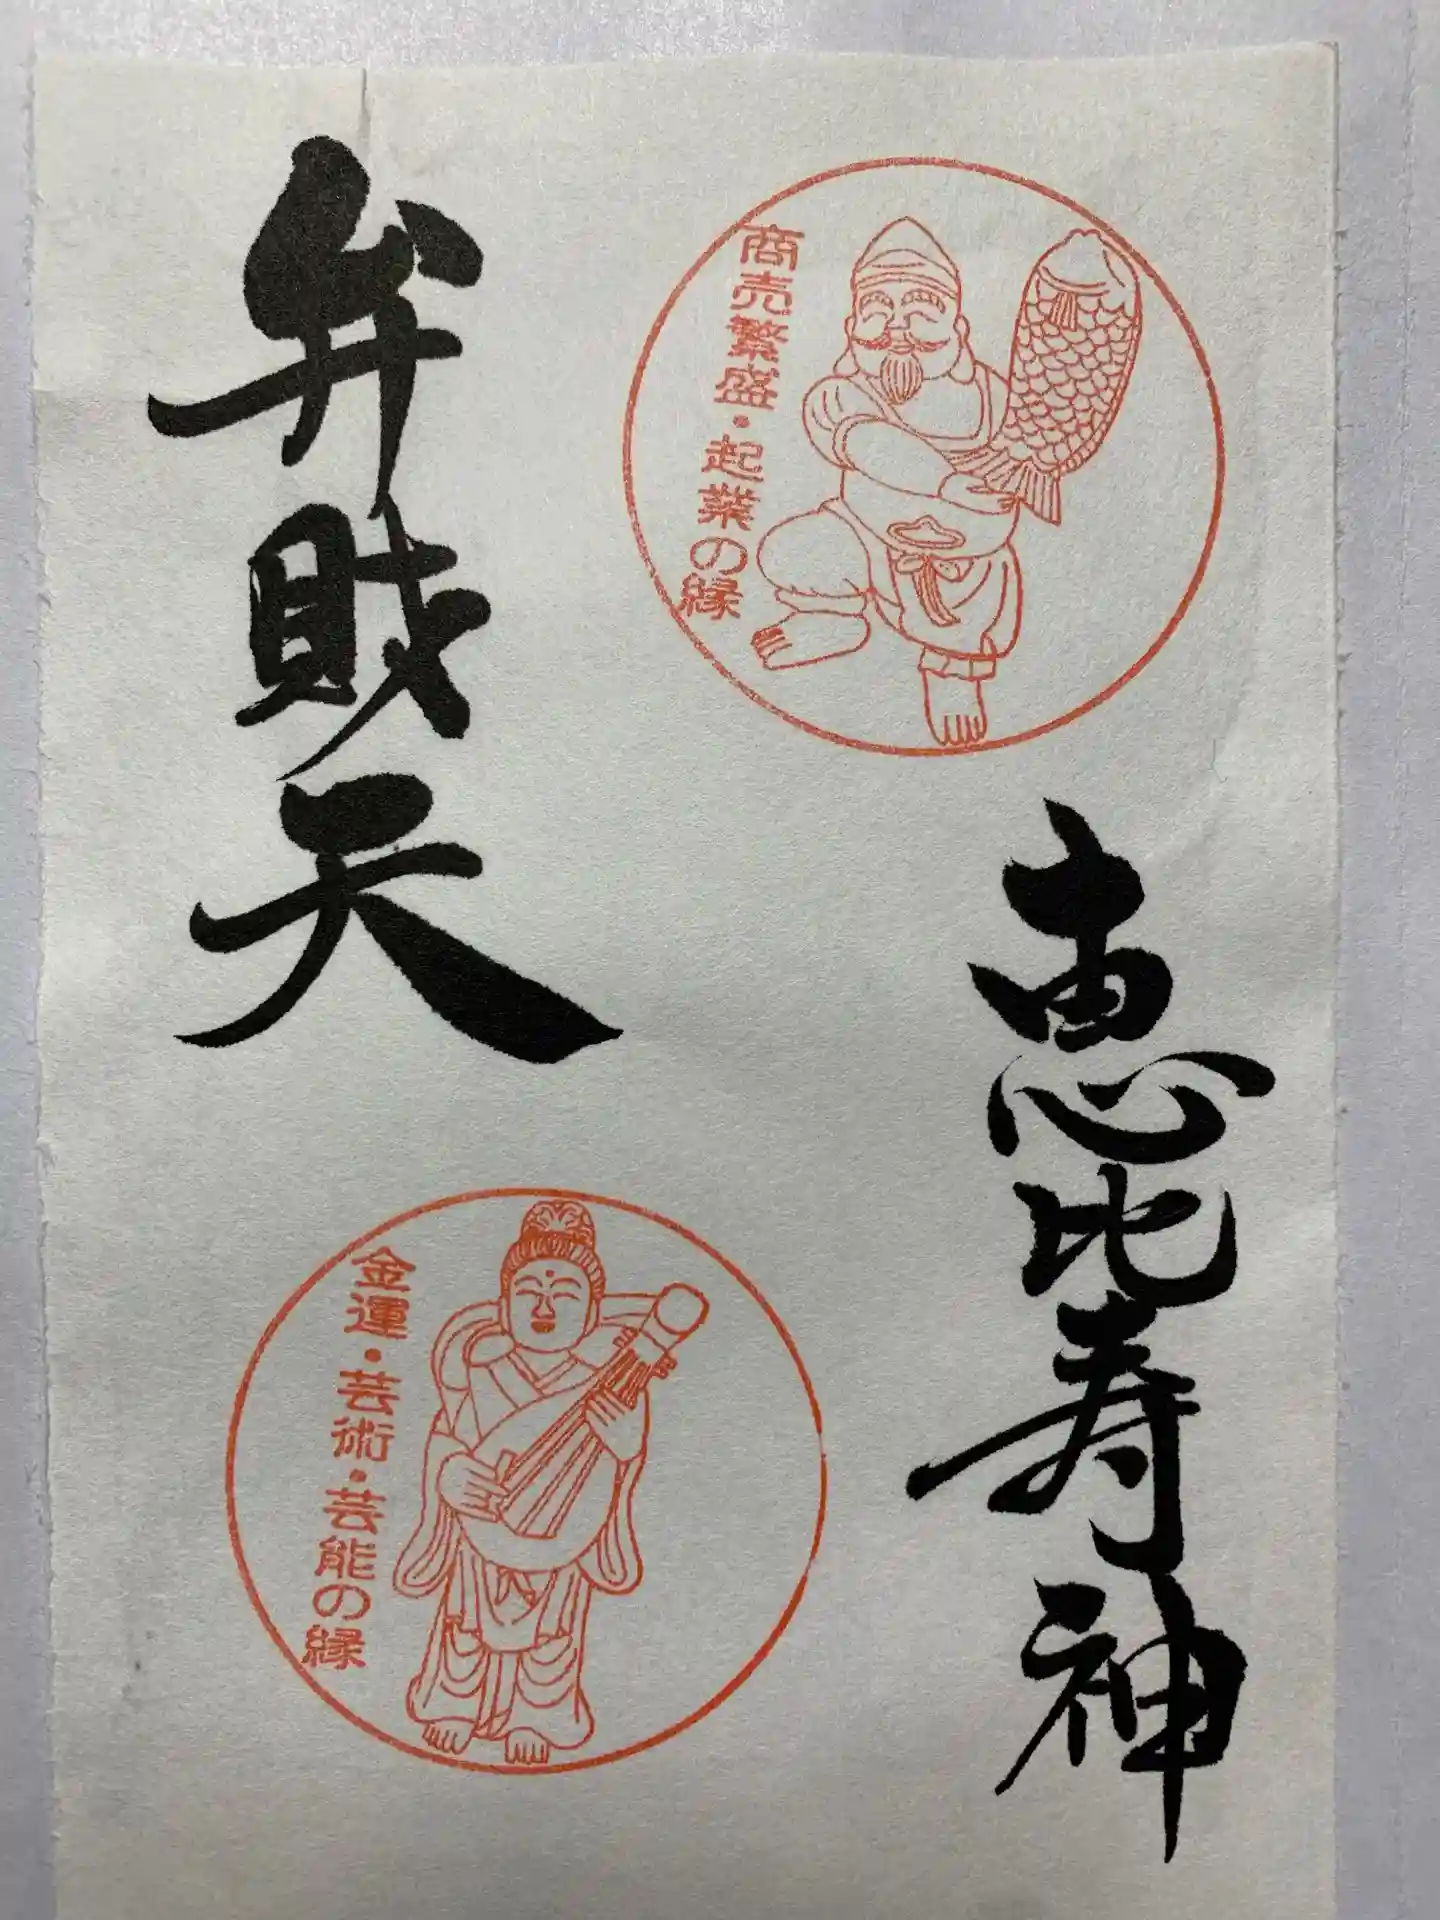 商売繁盛・起業の縁
恵比寿神
弁財天
金運・芸術・芸能の縁